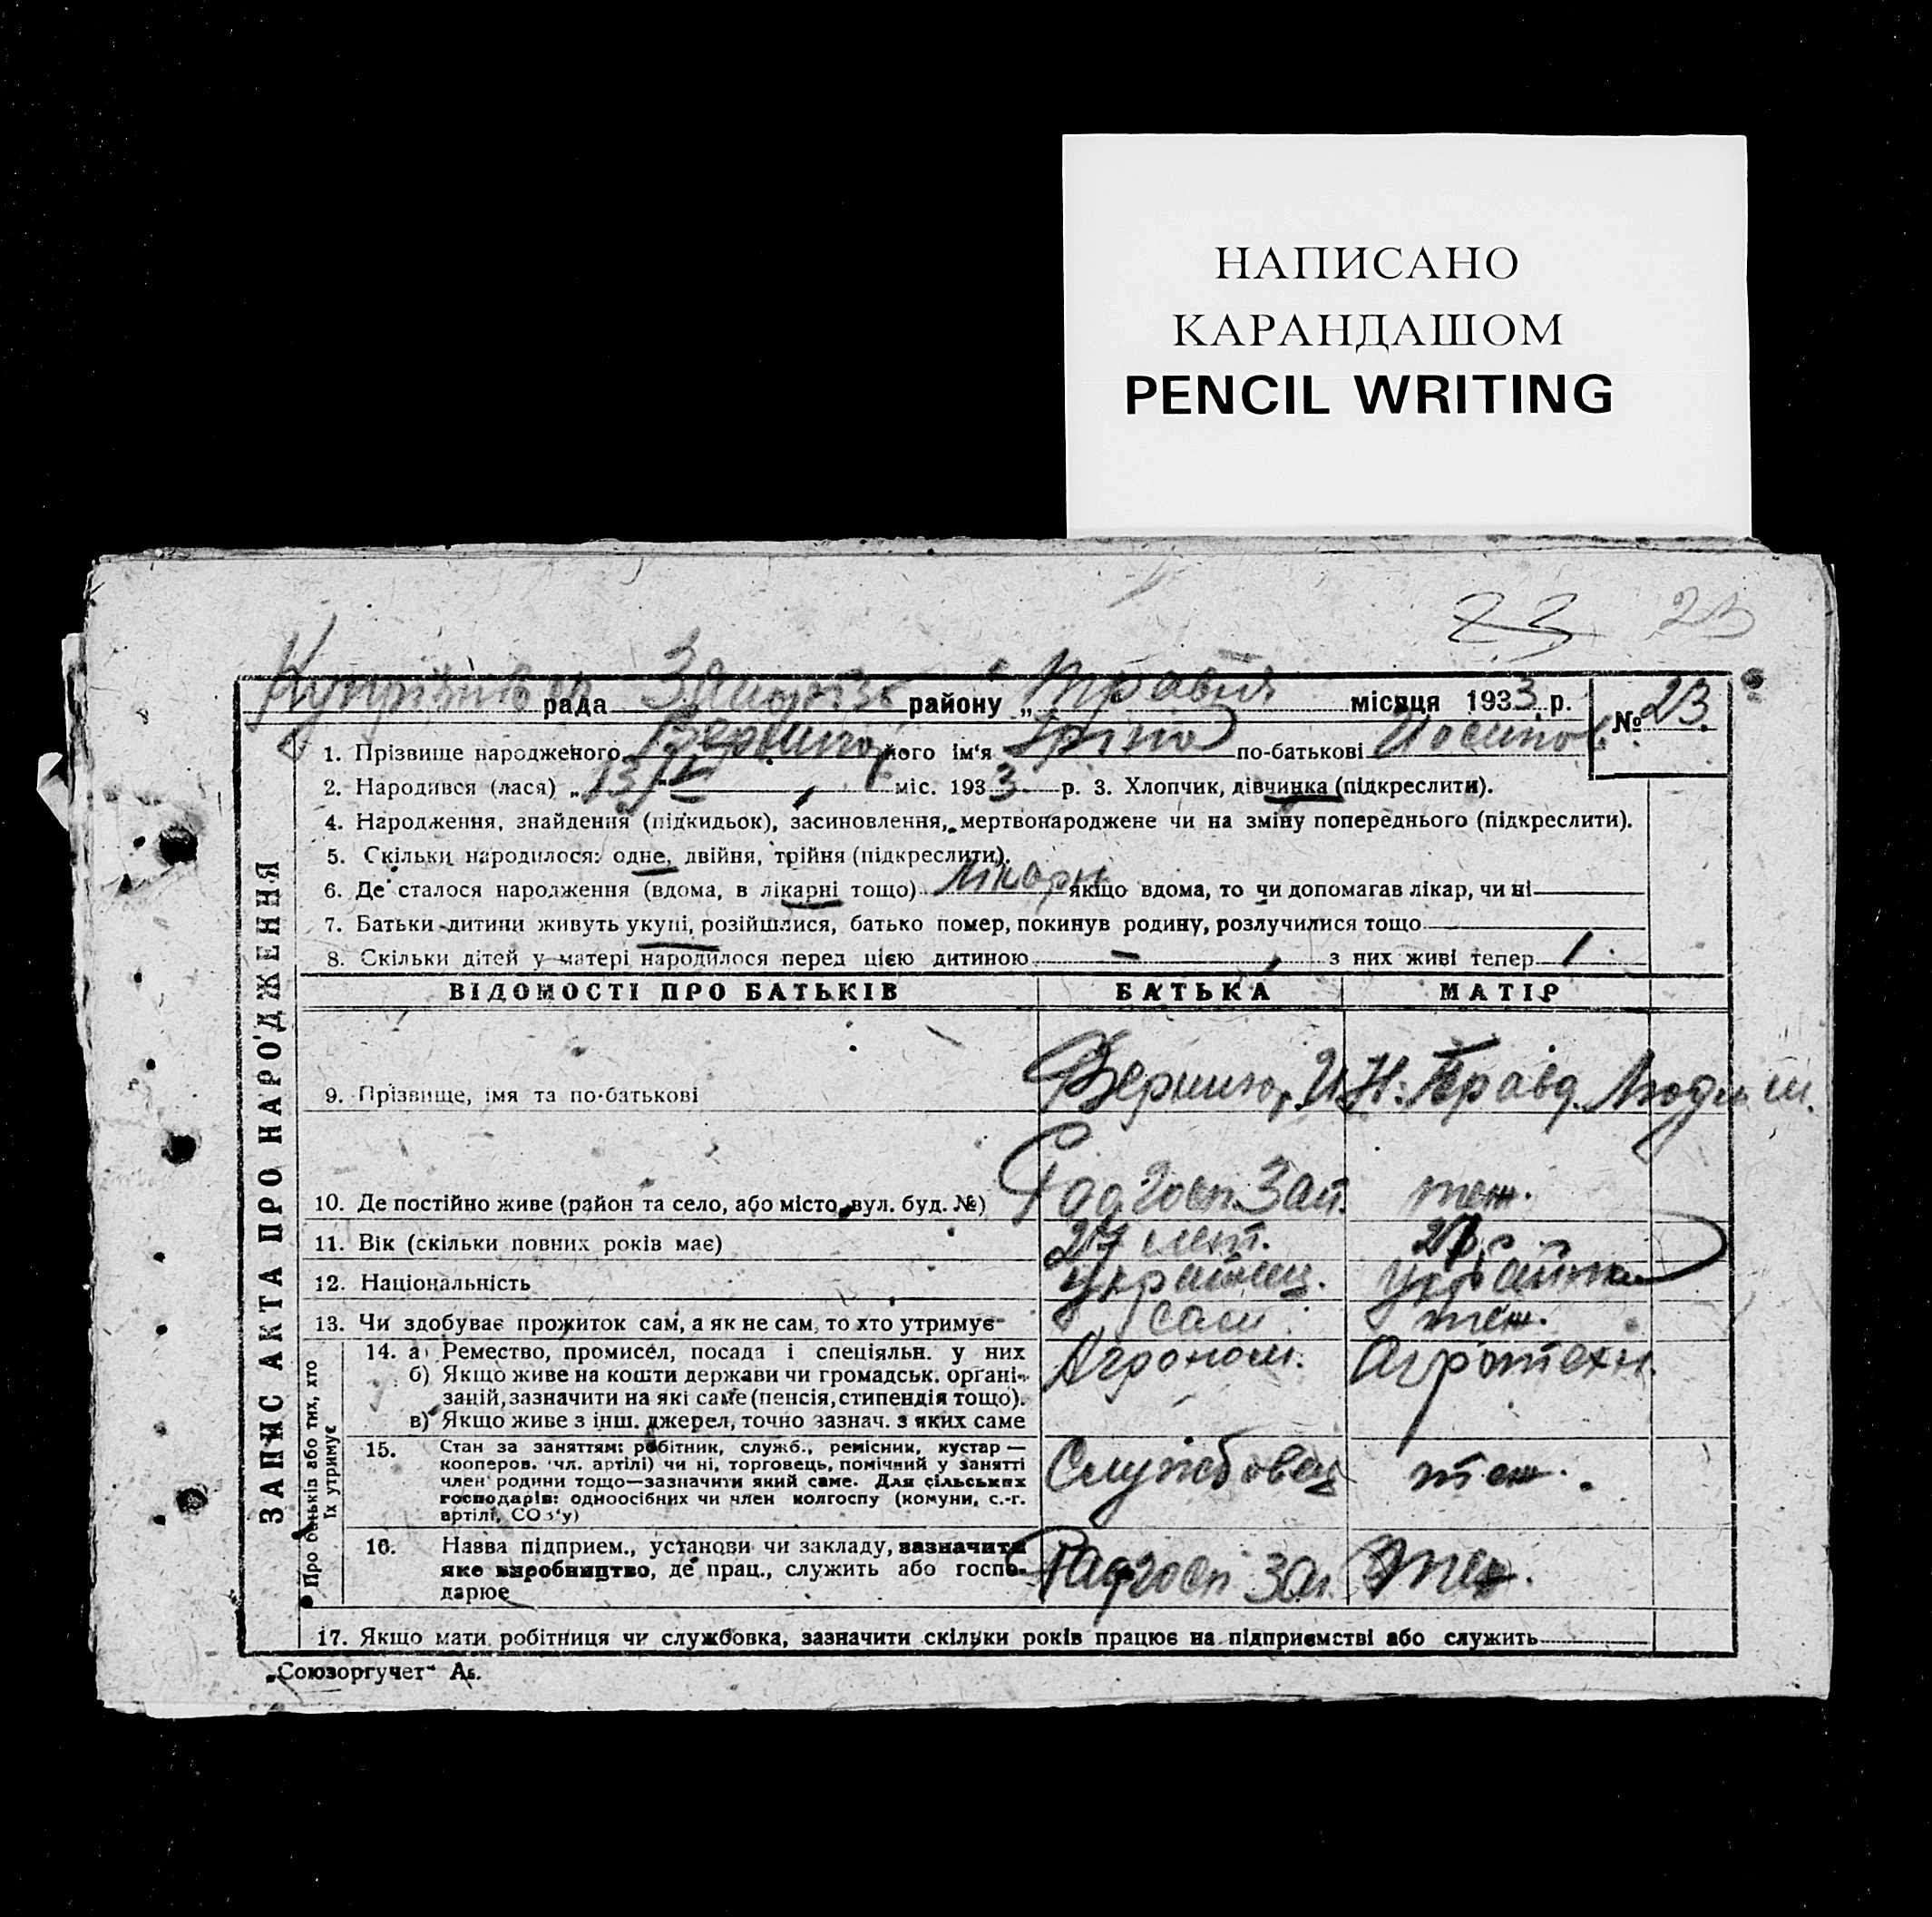 НАПИСАНО
КАРАНДАШОМ
PENCIL WRITING
23 23
рада району „ Травня місяця 1933 р. № 23
1. Прізвище народженого його ім‘я по-батькові Иосипов.
2. Народився (лася) „ 13/ міс. 1933 р. 3. Хлопчик, дівчинка (підкреслити).
4. Народження, знайдення (підкидьок), засиновлення, мертвонароджене чи на зміну попереднього (підкреслити).
5. Скільки народилося: одне, двійня, трійня (підкреслити).
6. Де сталося народження (вдома, в лікарні тощо) лікарн якщо вдома, то чи допомагав лікар, чи ні
7. Батьки дитини живуть укупі, розійшлися, батько помер, покинув родину, розлучилися тощо
8. Скільки дітей у матері народилося перед цією дитиною — з них живі тепер 1
ЗАПИС АКТА ПРО НАРОДЖЕННЯ
ВІДОМОСТІ ПРО БАТЬКІВ БАТЬКА МАТІР
9. Прізвище, імя та по-батькові И.Н. Правд. Людм
10. Де постійно живе (район та село, або місто, вул. буд. №) Радгосп Зап. теж.
11. Вік (скільки повних років має) 27 лет.
12. Національність Українец. Українка
13. Чи здобуває прожиток сам, а як не сам, то хто утримує сам теж.
Про батьків або тих, хто їх утримує
14. а) Ремество, промисел, посада і спеціяльн. у них Агроном. Агротехн.
б) Якщо живе на кошти держави чи громадськ. органі-
зацій, зазначити на які саме (пенсія, стипендія тощо).
в) Якщо живе з інш. джерел, точно зазнач. з яких саме
15. Стан за заняттям: робітник, служб., ремісник, кустар —
кооперов. (чл. артілі) чи ні, торговець, помічний у занятті
член родини тощо—зазначити який саме. Для сільських
господарів: одноосібних чи член колгоспу (комуни, с.-г.
артілі, СОЗ‘у) Службовец теж.
16. Назва підприєм., установи чи закладу, зазначити
яке виробництво, де прац., служить або госпо-
дарює Радгосп Зап. теж.
17. Якщо мати робітниця чи службовка, зазначити скільки років працює на підприємстві або служить
„Союзоргучет“